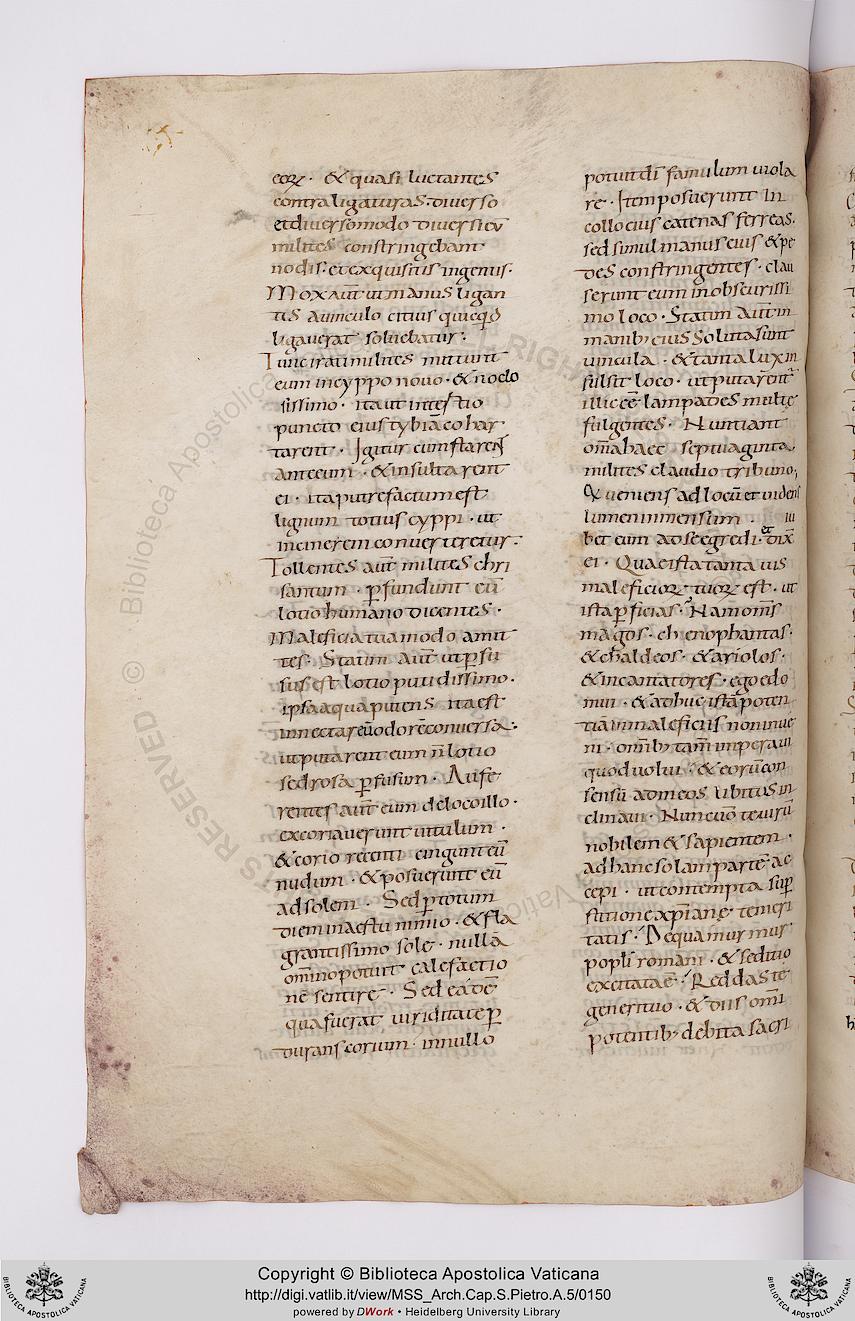 eoꝝ · & quasi luctantes
contra ligaturas · diverso
et diverso modo diversi eū
milites constringebant
nodis · et exquisitis ingeniis ·
Mox aut̄ ut manus ligan
tis a vinculo citius quicq̄d
ligaverat solvebatur ·
Tunc irati milites mittunt
eum in cyppo novo · & nodo
sissimo · ita ut intestio
puncto eius tybiā cohar
tarent · Igitur cum starent
ante eum · & insultarent
ei · ita putrefactum est
lignum totius cyppi · ut
in cinerem converteretur ·
Tollentes aut̄ milites chri
santum · p̄fundunt eū
lotio humano dicentes ·
Maleficia tua modo amit
tes · Statim aut̄ ut p̄fu
sus est lotio putidissimo ·
ipsa aqua putens ita est
in nectareū odorē conversa ·
ut putarent eum n̄ lotio
sed rosa p̄fusum · Aufe
rentes aut̄ eum de loco illo ·
excoriaverunt vitulum ·
& corio recenti cingunt eū
nudum · & posuerunt eū
ad solem · Sed p̄ totum
diem in aestu nimio · & fla
grantissimo sole · nullā
om̄ino potuit calefactio
nē sentire · Sed eadē
qua fuerat viriditate p̄
durans corium · in nullo
potuit dī famulum viola
re · Item posuerunt in
collo eius catenas ferreas ·
sed simul manus eius & pe
des constringentes · clau
serunt eum in obscurissi
mo loco · Statim aut̄ in
manibꝫ eius soluta sunt
vincula · & tanta lux in
fulsit loco · ut putarent
illic eē lampades multę
fulgentes · Nuntiant
om̄a haec septuaginta
milites claudio tribuno,
Qui veniens ad locū et videns
lumen inmensum · iu
bet eum ad se egredi · et dix̄
ei · Quae ista tanta vis
maleficioꝝ tuoꝝ est · ut
ista p̄ficias · Nam om̄s
magos · chenophantas ·
& chaldeos · & ariolos ·
& incantatores · ego edo
mui · & adhuc istā poten
tiā in maleficiis non inve
ni · om̄ibꝫ tam̄ imperavi
quod volui · & eorū con
sensū ad meos libitus in
clinavi · Nunc v̄o te virū
nobilem & sapientem ·
ad hanc solam partē ac
cepi · ut contempta sup̄
stitione xp̄ianę temeri
tatis · De qua murmur
popl̄i romani · & seditio
excitata ē · Reddas te
generi tuo · & diis omni
potentibꝫ debita sacri
Copyright © Biblioteca Apostolica Vaticana
http://digi.vatlib.it/view/MSS_Arch.Cap.S.Pietro.A.5/0150
powered by DWork • Heidelberg University Library